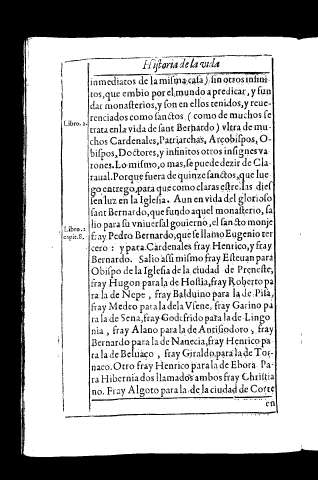 Historia de la vida
inmediatos de la misma casa) sin otros infini
tos, que embio por el mundo a predicar, y fun
dar monasterios, y son en ellos tenidos, y reue-
renciados como sanctos (como de muchos se
Libro. 2.
trata en la vida de sant Bernardo) vltra de mu-
chos Cardenales, Patriarchas, Arçobispos, O-
bispos, Doctores, y infinitos otros insignes va
rones. Lo mismo, o mas, se puede dezir de Cla-
raual. Porque fuera de quinze sanctos, que lue-
go entrego, para que como claras estre. las dies
sen luz en la Iglesia. Aun en vida del glorioso
sant Bernardo, que fundo aquel monasterio, sa
lio para su vniuersal gouierno, el sancto monje
Libro. 2
capit. 8.
fray Pedro Bernardo, que se llamo Eugenio ter
cero: y para Cardenales fray Henrico, y fray
Bernardo. Salio assi mismo fray Esteuan para
Obispo de la Iglesia de la ciudad de Preneste,
fray Hugon para la de Hostia, fray Roberto pa
ra la de Nepe, fray Balduino para la de Pisa,
fray Medro para la de la Viene, fray Garino pa
ra la de Sena, fray Godofrido para la de Lingo
nia, fray Alano para la de Antisiodoro, fray
Bernardo para la de Nanecia, fray Henrico pa
ra la de Beluaco, fray Giraldo, para la de Tor-
naco. Otro fray Henrico para la de Ebora Pa-
ra Hibernia dos llamados ambos fray Christia
no. Fray Algoto para la de la ciudad de Corte
en